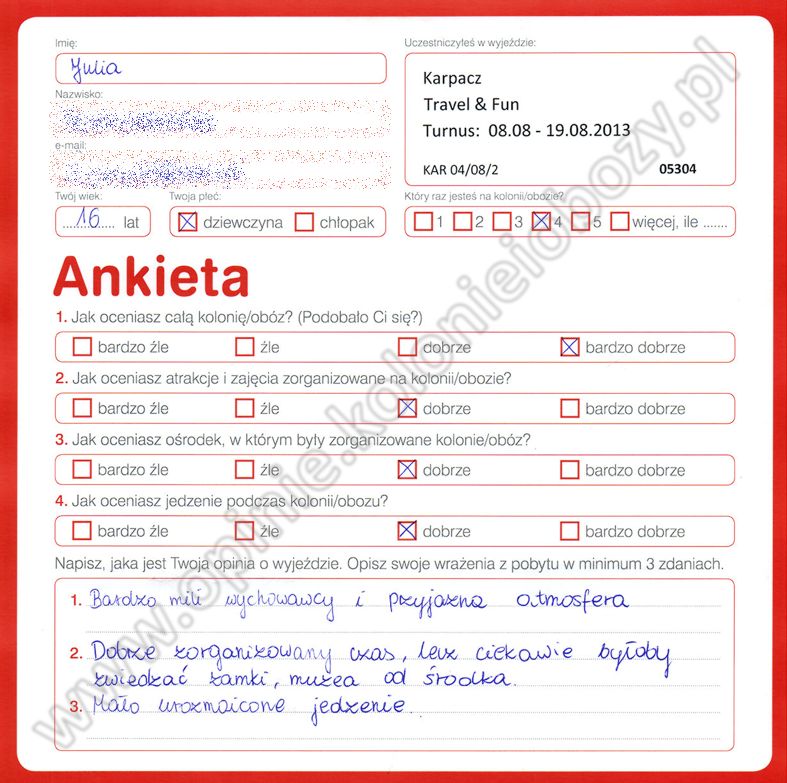 Imię:
Uczestniczyłeś w wyjeździe:
Julia
Karpacz
Travel & Fun
Turnus: 08.08 - 19.08.2013
KAR 04/08/2 05304
Nazwisko:
e-mail:
Twój wiek: Twoja płeć: Który raz jesteś na kolonii/obozie?
16 lat dziewczyna chłopak 1 2 3 4 5 więcej, ile .......
Ankieta
1. Jak oceniasz całą kolonię/obóz? (Podobało Ci się?)
bardzo źle źle dobrze bardzo dobrze
2. Jak oceniasz atrakcje i zajęcia zorganizowane na kolonii/obozie?
bardzo źle źle dobrze bardzo dobrze
3. Jak oceniasz ośrodek, w którym były zorganizowane kolonie/obóz?
bardzo źle źle dobrze bardzo dobrze
4. Jak oceniasz jedzenie podczas kolonii/obozu?
bardzo źle źle dobrze bardzo dobrze
Napisz, jaka jest Twoja opinia o wyjeździe. Opisz swoje wrażenia z pobytu w minimum 3 zdaniach.
1. Bardzo mili wychowawcy i przyjazna atmosfera
2. Dobrze zorganizowany czas, lecz ciekawie byłoby
zwiedzać zamki, muzea od środka.
3. Mało urozmaicone jedzenie.
www.opinie.kolonieiobozy.pl